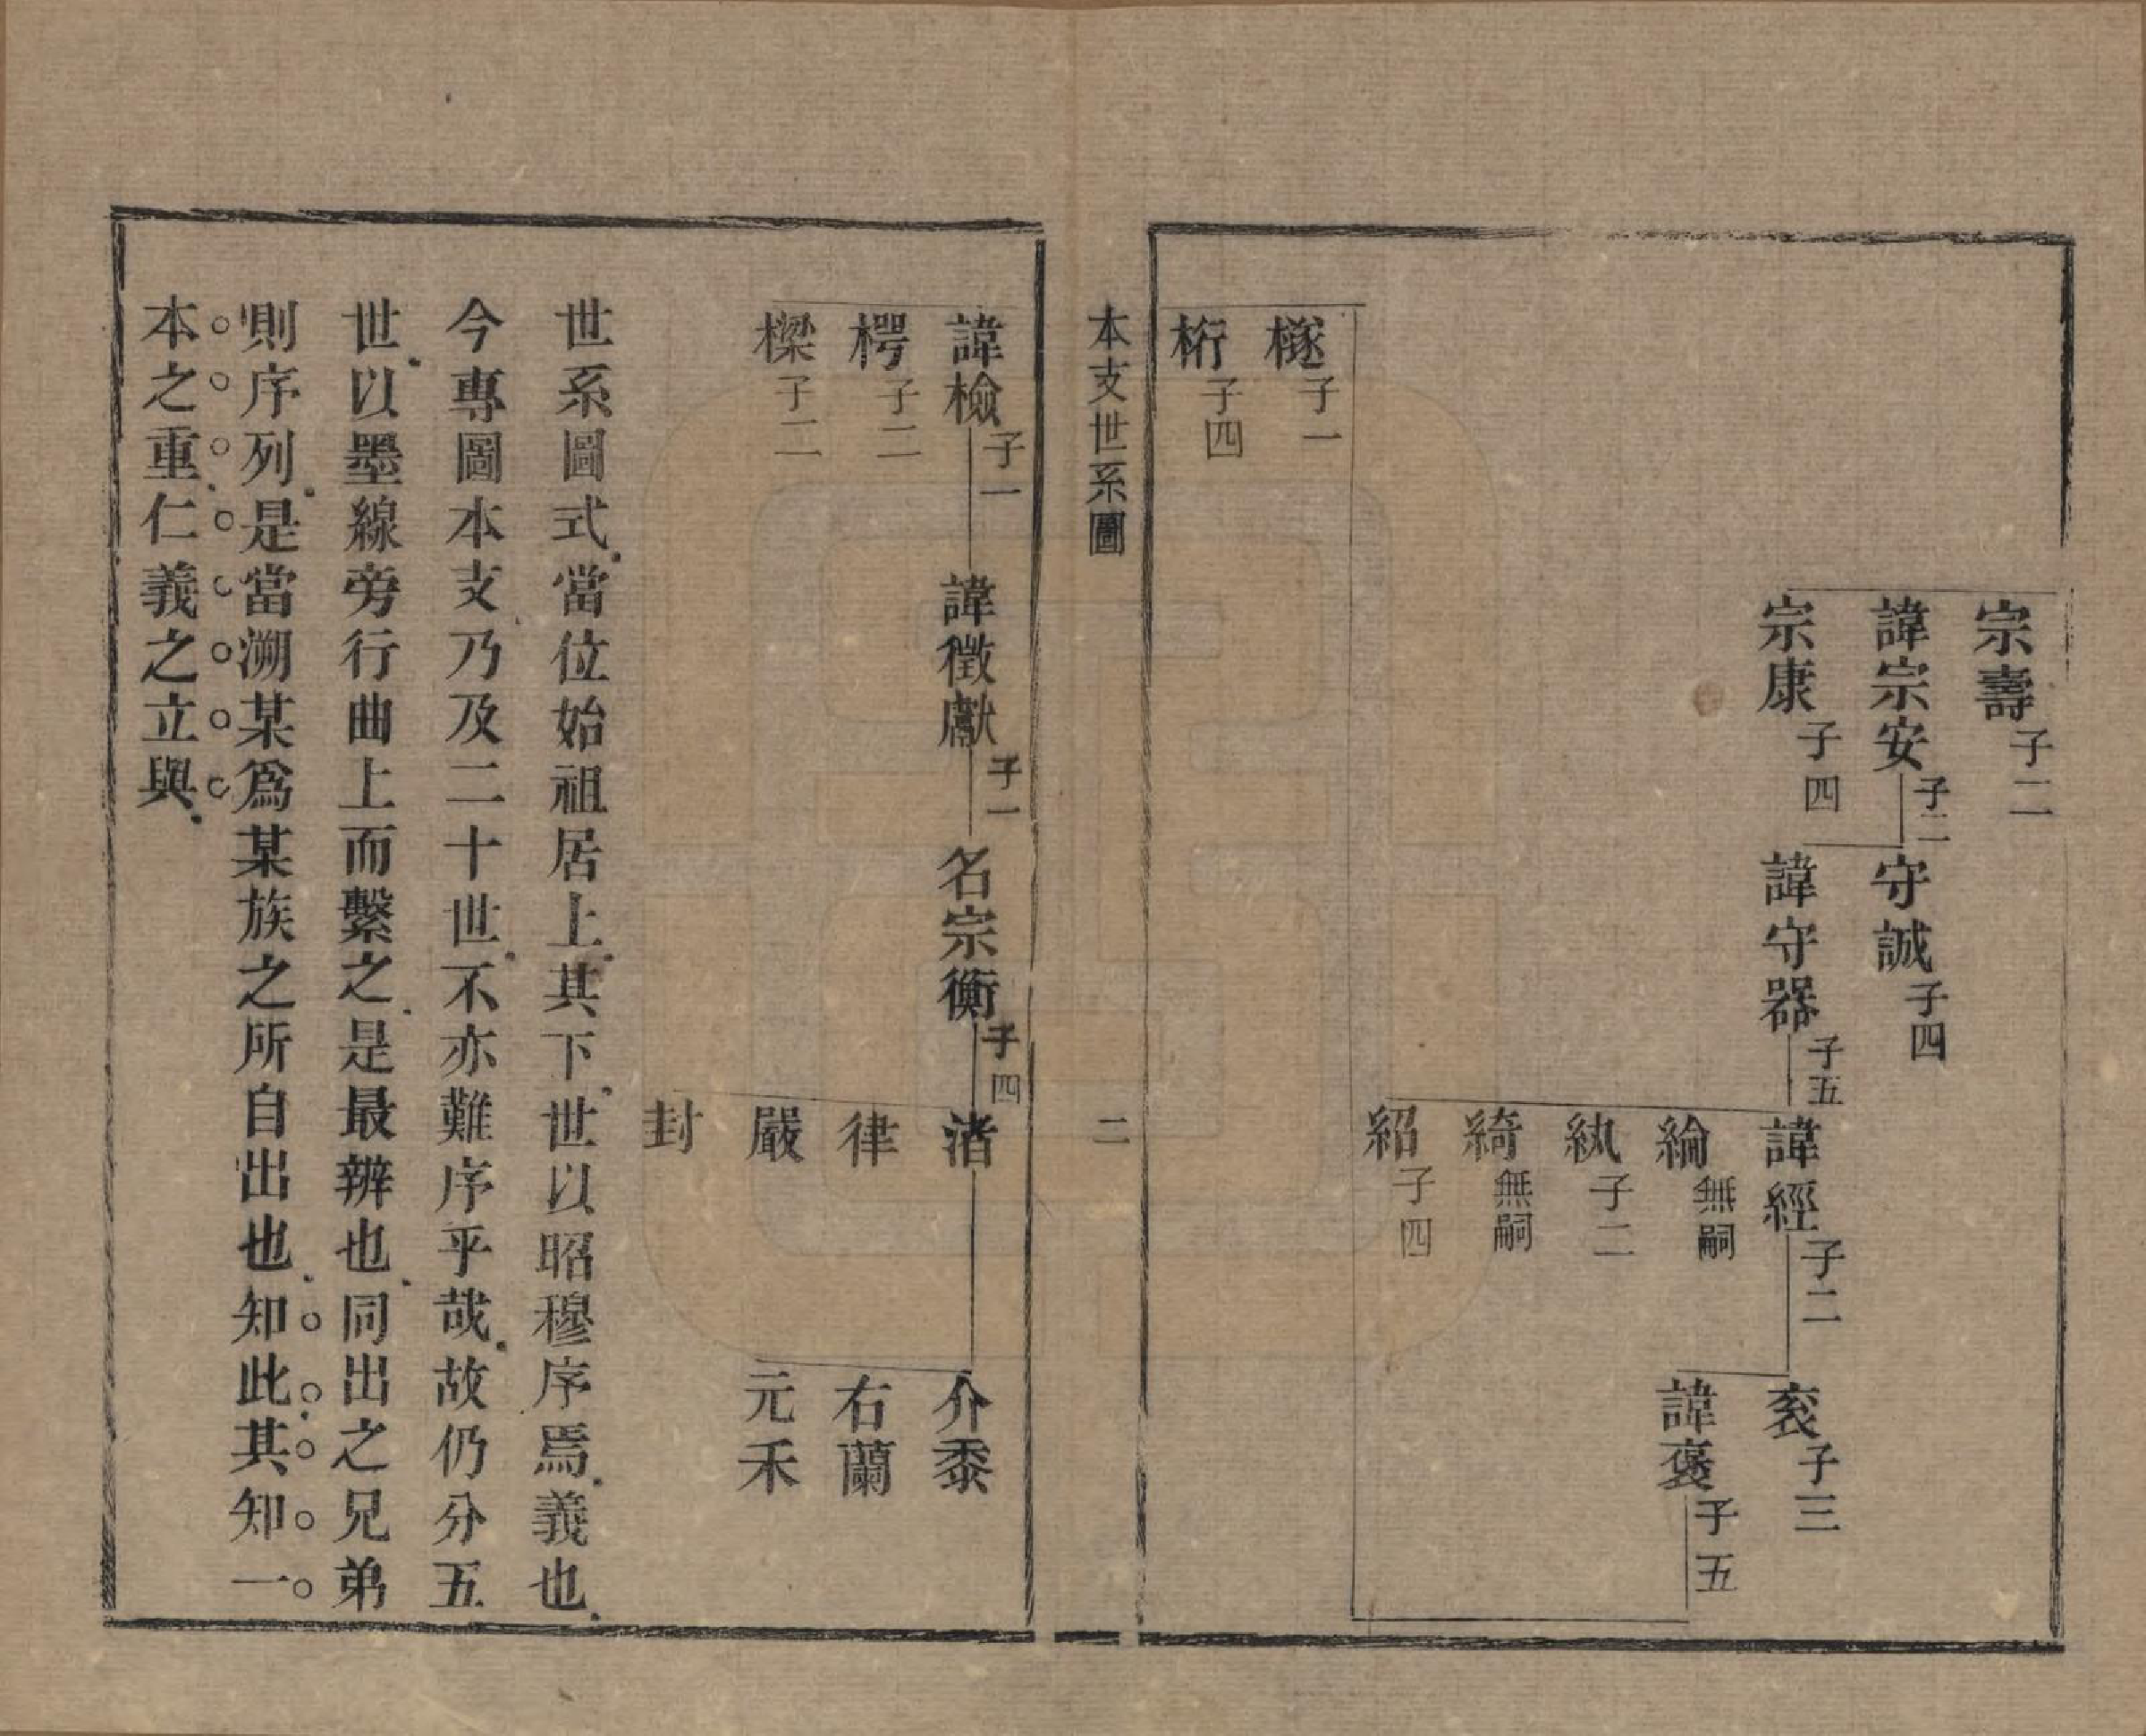 宗壽子二
諱宗安子二
宗康子四
守誠子四
諱守器子五
諱經子二
綸無嗣
紈子二
綺無嗣
紹子四
袞子三
諱褒子五
檖子一
桁子四
本支世系圖
二
諱檢子一
樗子二
樑子二
諱徵獻子一
名宗衡子四
渚
律
嚴
封
介黍
右蘭
元禾
世系圖式當位始祖居上其下世以昭穆序焉義也
今專圖本支乃及二十世不亦難序乎哉故仍分五
世以墨線旁行曲上而繫之是最辨也同出之兄弟
則序列是當溯某爲某族之所自出也知此其知一
本之重仁義之立與